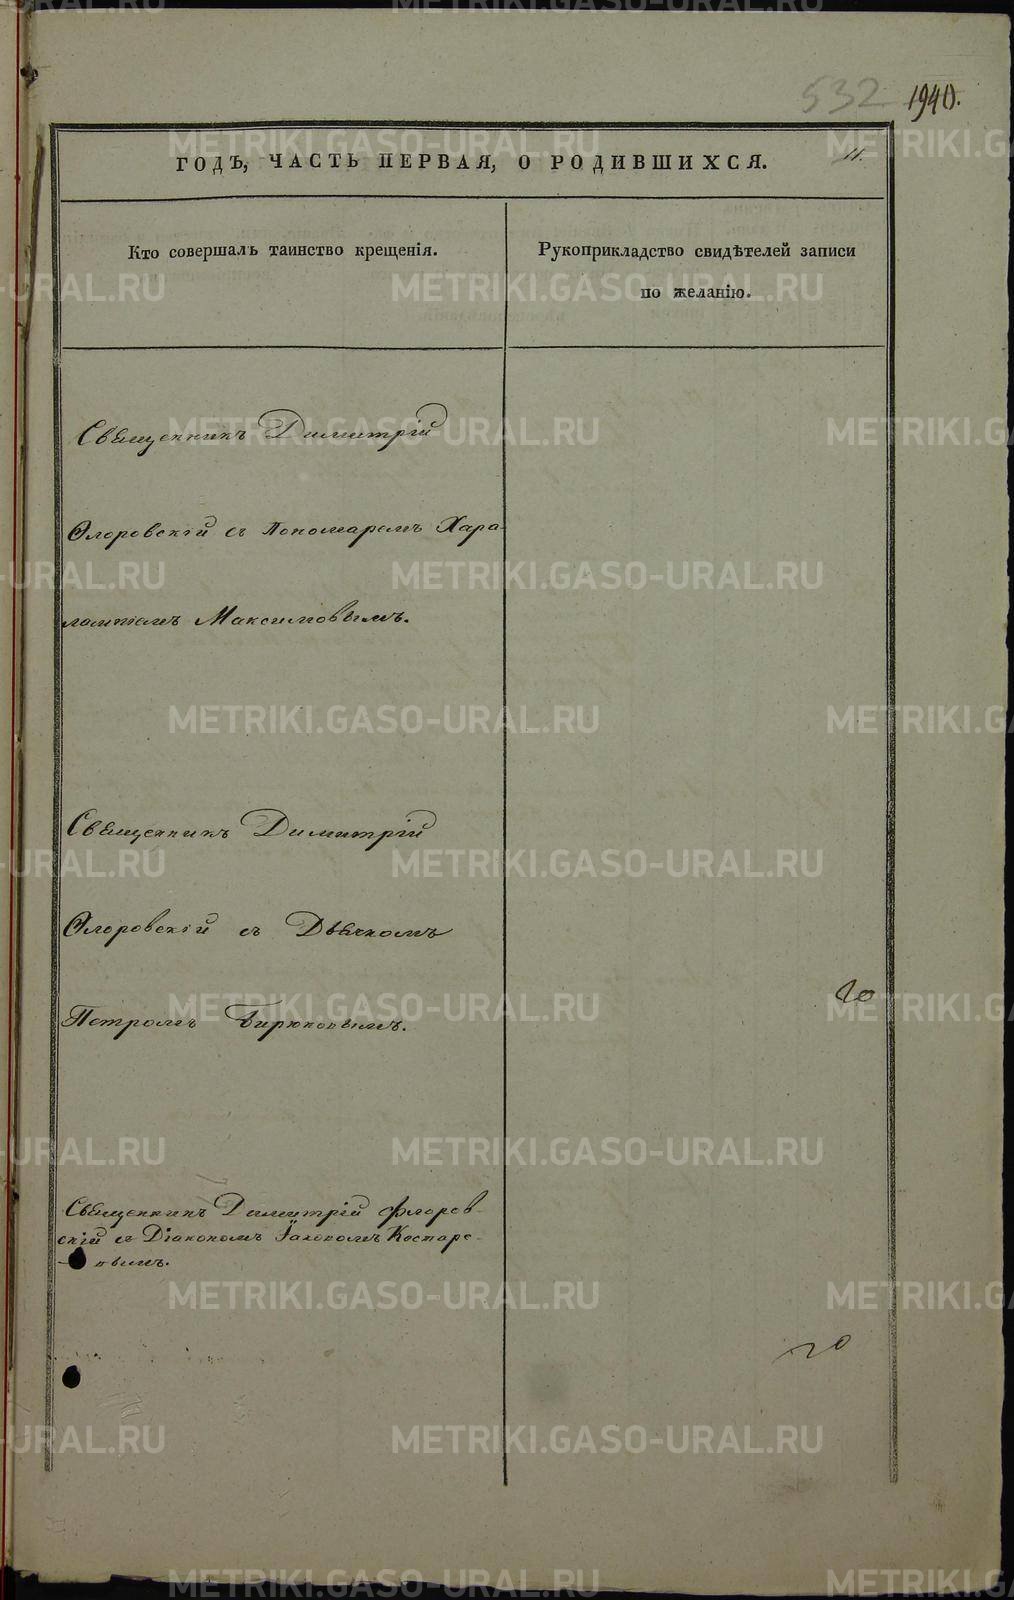 532 1940.
ГОДЪ, ЧАСТЬ ПЕРВАЯ, О РОДИВШИХСЯ. 11.
Кто совершалъ таинство крещенія.
Рукоприкладство свидѣтелей записи
по желанію.
Священникъ Димитрій
Флоровскій съ Пономаремъ Хара-
лампіемъ Максимовымъ.
Священникъ Димитрій
Флоровскій съ Дьячкомъ
Петромъ Бирюковымъ.
Священникъ Димитрій Флоров-
скій съ Діакономъ Іаковомъ Костаре-
вымъ.
METRIKI.GASO-URAL.RU